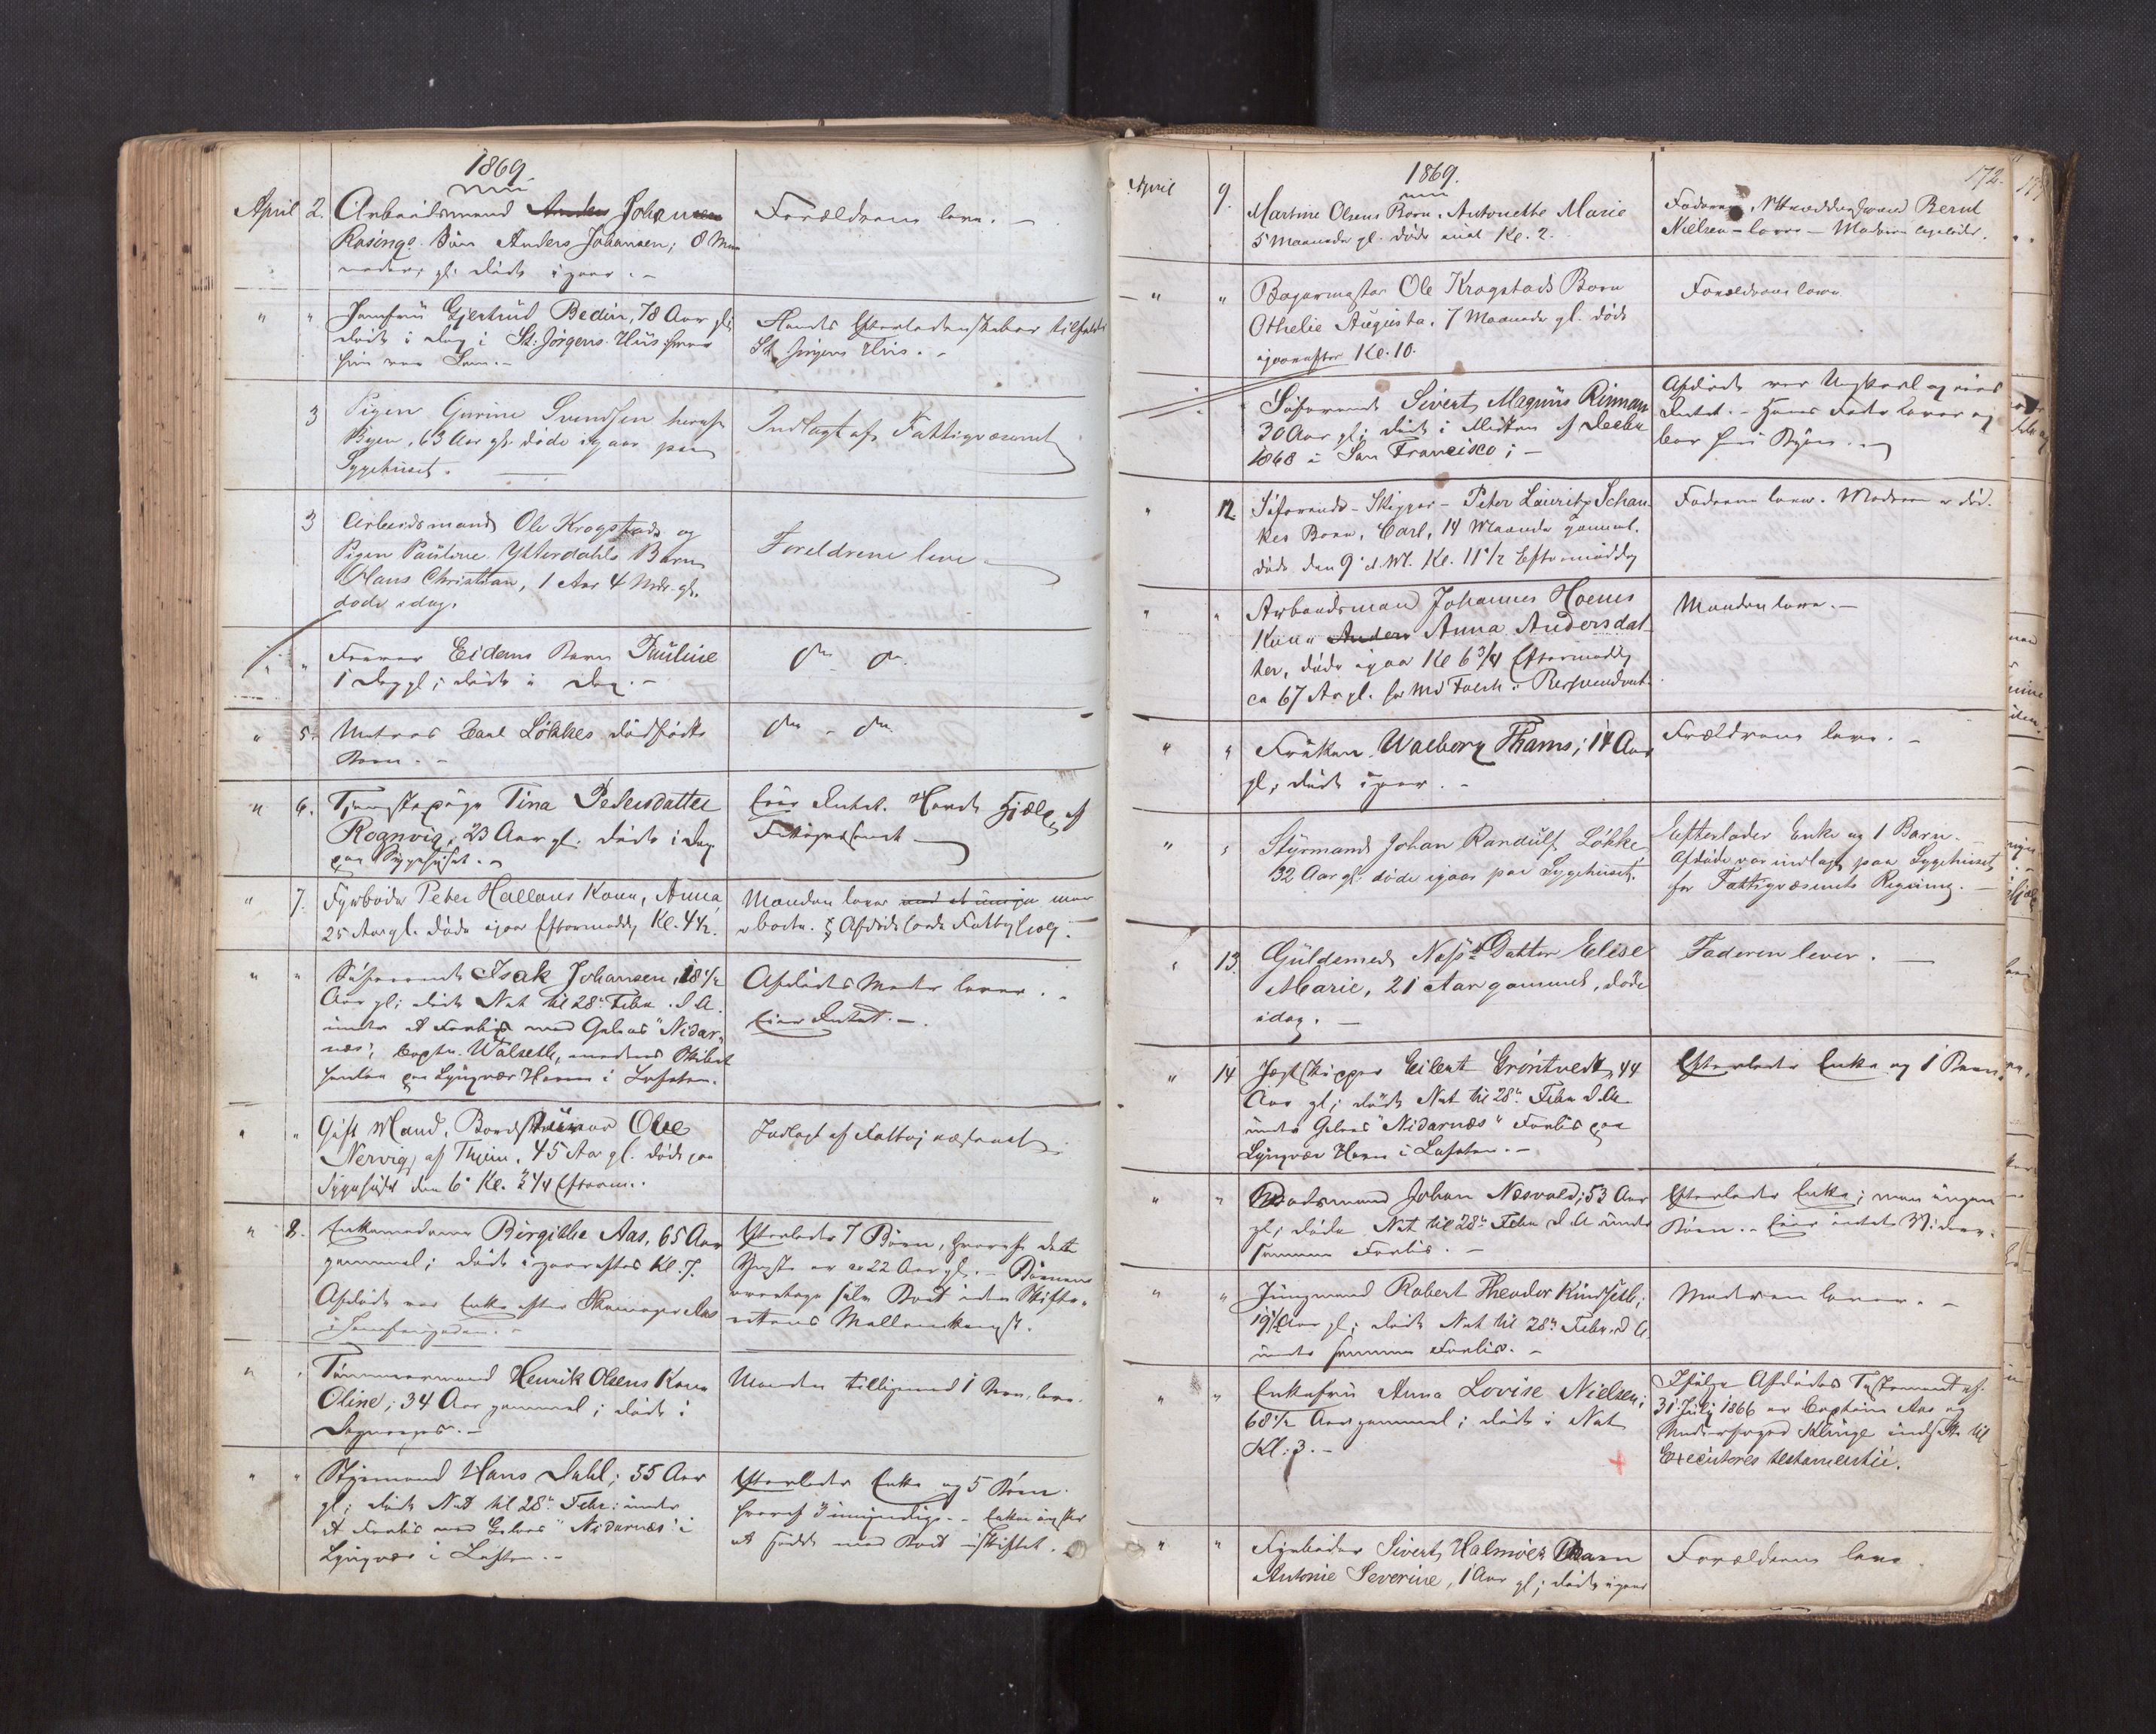 1869
April 2. Arbeidsmand Anders Johansen
Rosings Søn Anders Johansen; 8 Maa-
neder gl. døde igaar.-
Forældrene leve.-
" " Jomfru Gjertrud Bedin, 78 Aar gl;
døde i Dag i St: Jørgens Huus hvor
hun var Lem.-
Hendes Efterladenskaber tilfalde
St. Jørgens Huus.-
3 Pigen Gurine Svendsen heraf
Byen, 63 Aar gl. døde igaar paa
Sygehuset.
Indlagt af Fattigvæsenet
3 Arbeidsmand Ole Krogstads og
Pigen Pauline Ytterdahls Barn
Hans Christian, 1 Aar 4 Mdr. gl.
døde idag.
Foreldrene leve
" " Eidems Barn Pauline
1 Dag gl; døde i Dag.-
do do.
" 5. Matros Carl Løkkes dødfødte
Barn.-
do - do.
" 6. Tjenestepige Tina Pedersdatter
Rognvig, 23 Aar gl. døde i Dag
paa Sygehuset.-
Eier Intet. Havde Hjælp af
Fattigvæsenet
" 7. Fyrbøder Peter Hallans Kone, Anna
25 Aar gl. døde igaar Eftermiddag Kl. 4½.
Manden lever
" " Søfarende Isak Johansen, 18½
Aar gl; døde Nat til 28. Febr. d. A.
under et Forliis med Galeas "Nidar-
næs", Captn. Walseth, medens Skibet
paa Lyngvær Havn i Lofoten.
Afdødes Moder lever.-
Eier Intet.-
" " Gift Mand, Ole
Nervig, af Thjem, 45 Aar gl. døde paa
Sygehuset den 6. Kl. 2¼ Efterm.
Indlagt af Fattigvæsenet
" 8. Enkemadame Birgitte Aas, 65 Aar
gammel; døde igaaraftes Kl. 7.
Afdøde var Enke efter Aas
Efterlader 7 Børn, hvoraf det
Yngste er ca 22 Aar gl.- Børnene
overtage selv Boet uden Skifte-
rettens Mellemkomst.
" " Tømmermand Henrik Olsens Kone
Oline; 34 Aar gammel; døde i
Manden tilligemed 1 Barn lever.
" " Styrmand Hans Dahl; 55 Aar
gl; døde Nat til 28. Febr: under
et Forliis med Galeas "Nidarnæs" i
Lyngvær i Lofoten.-
Efterlader Enke og 5 Børn
hvoraf 3 umyndige.- Enken ønsker
at sidde med Boet uskiftet.
1869.
172.
April 9. Martine Olsens Barn, Antonette Marie
5 Maaneder gl. døde inat Kl. 2.
Faderen, Bernt
Nielsen - lever - Moderen ligeledes.
" " Bagermester Ole Krogstads Barn
Othelie Augusta, 7 Maaneder gl. døde
igaaraftes Kl. 10.
Forældrene leve.
Søfarende Sivert Magnus Rinnan
30 Aar gl; døde i Midten af Decbr
1868 i San Francisco;-
Afdøde var Ungkarl og eied
Intet.- Hans Fader lever og
bor her i Byen.-
" 12. Søfarende - Skipper - Peter Lauritz Schan-
kes Barn, Carl, 14 Maaneder gammel.
døde den 9. d. M. Kl. 11½ Eftermiddag
Faderen lever. Moderen er død.
" " Arbeidsmand Johannes Hoems
Kone Anders Anna Andersdat-
ter, døde igaar Kl 6¾ Eftermiddag
ca 67 Ar gl.
Manden lever.-
" " Frøken Walborg Thams; 14 Aar
gl, døde igaar.-
Forældrene leve.-
" " Styrmand Johan Randulf Løkke
32 Aar gl. døde igaar paa Sygehuset.
Eefterlader Enke og 1 Barn.
Afdøde var indlagt paa Sygehuset
for Fattigvæsenets Regning.-
" 13. Guldsmed Næss Datter Elise
Marie, 21 Aar gammel, døde
idag.-
Faderen lever.-
" 14 Jagtskipper Eilert Grøntvedt, 44
Aar gl; døde Nat til 28. Febr d. A.
under Galeas "Nidarnæs" Forliis paa
Lyngvær Havn i Lofoten.-
Efterlader Enke og 1 Barn.
" " Baadsmand Johan Næsvold; 53 Aar
gl; døde Nat til 28. Febr d. A. under
samme Forliis.-
Efterlader Enke; men ingen
Børn.- Eier intet Videre.
" " Jungmand Robert Theodor Kindseth;
19½ Aar gl; døde Nat til 28. Febr. d. A.
under samme Forliis.-
Moderen lever.-
" " Enkefru Anna Lovise Nielsen;
68½ Aar gammel; døde i Nat
Kl: 3.-
Ifølge Afdødes Testament af
31. July 1866 er Captein Aas og
Klinge indsatte til
Executores testamentii.
" " Fyrbøder Sivert Halmøes Barn
Antonie Severine, 1 Aar gl; døde igaar
Forældrene leve.